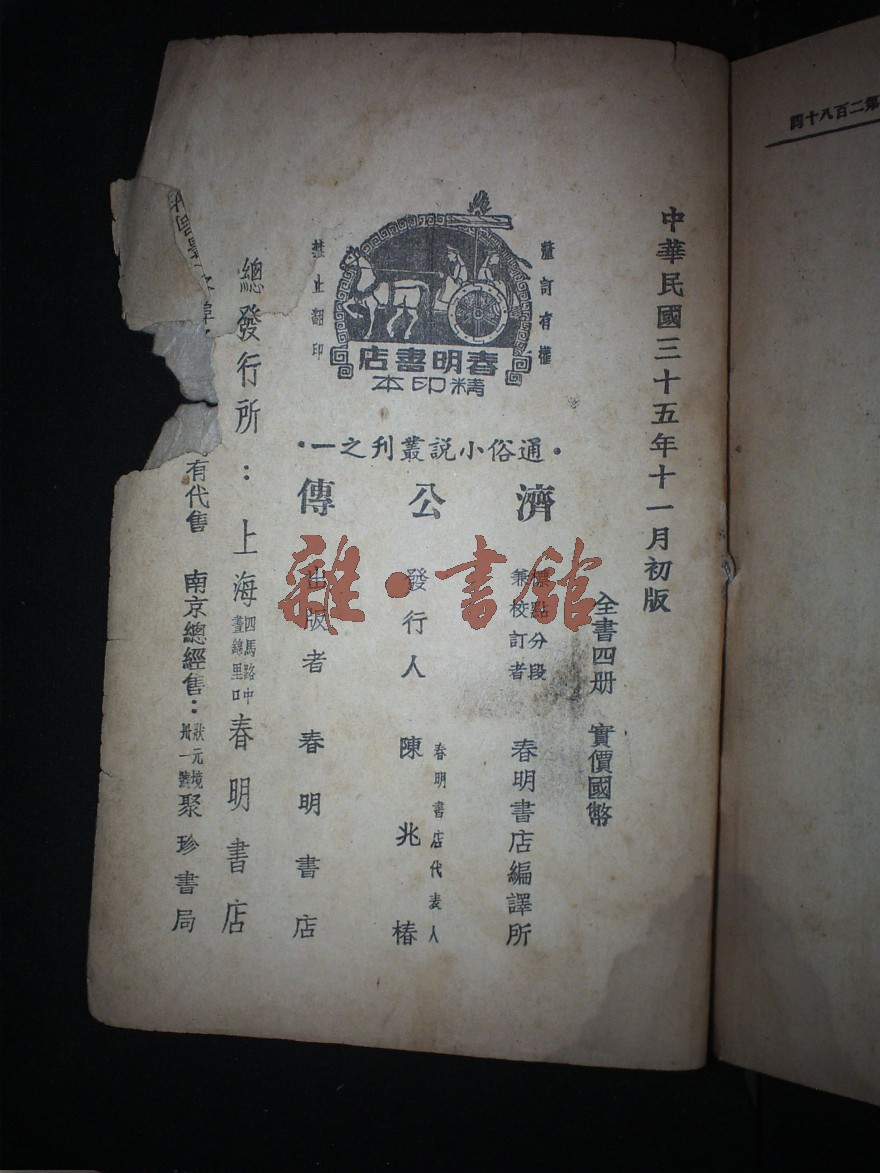 中華民國三十五年十一月初版
全書四册　實價國幣
重訂有權
禁止翻印
春明書店
精印本
·通俗小説叢刊之一·
濟公傳
標點分段
兼校訂者
春明書店編譯所
發行人
春明書店代表人
陳兆椿
出版者　春明書店
總發行所：上海
四馬路中
晝錦里口
春明書店
有代售　南京總經售：
狀元境
卅一號
聚珍書局
第二百八十回
雜·書館